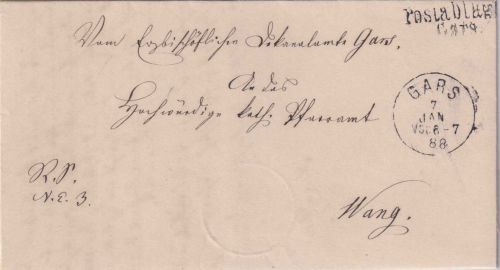 Postablag
Gars.
Vom Erzbischöflichen Dekanalamte Gars.
An das
Hochwürdige kath. Pfarramt
GARS
7
JAN
VSL6-7
88
R. S.
N. E. 3.
Wang.